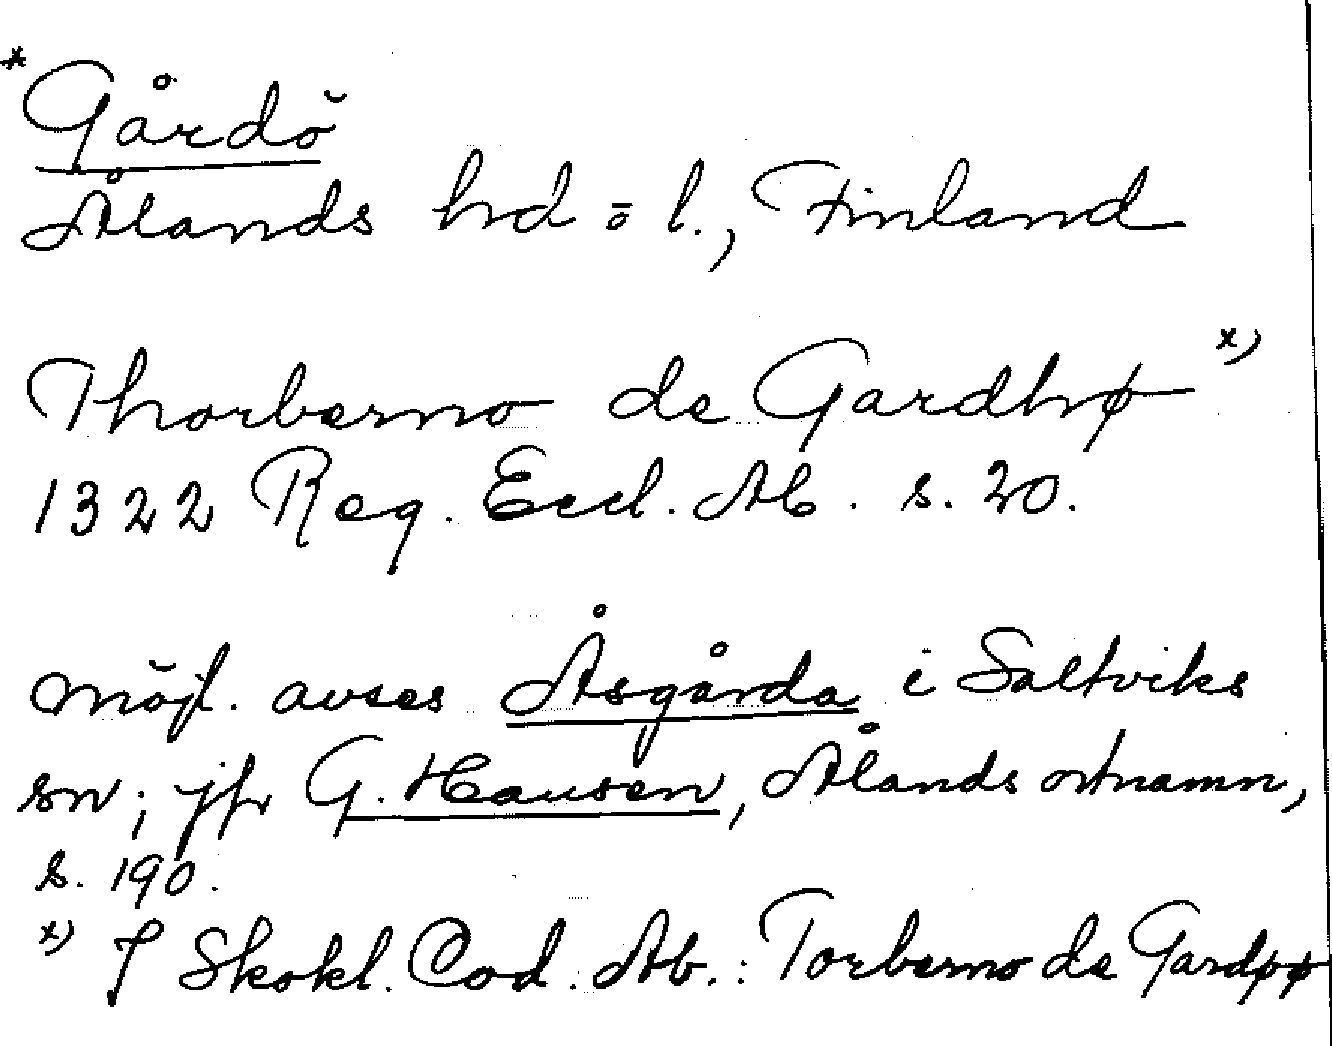 *Gårdö
Ålands hd o l., Finland
Thorberno de Gardhø x)
1322 Reg. Eccl. Ab. s. 20.
möjl. avses Åsgårda i Saltviks
sn; jfr G. Hausen, Ålands ortnamn,
s. 190.
x) I Skokl. Cod. Ab.: Torberno de Gardøø